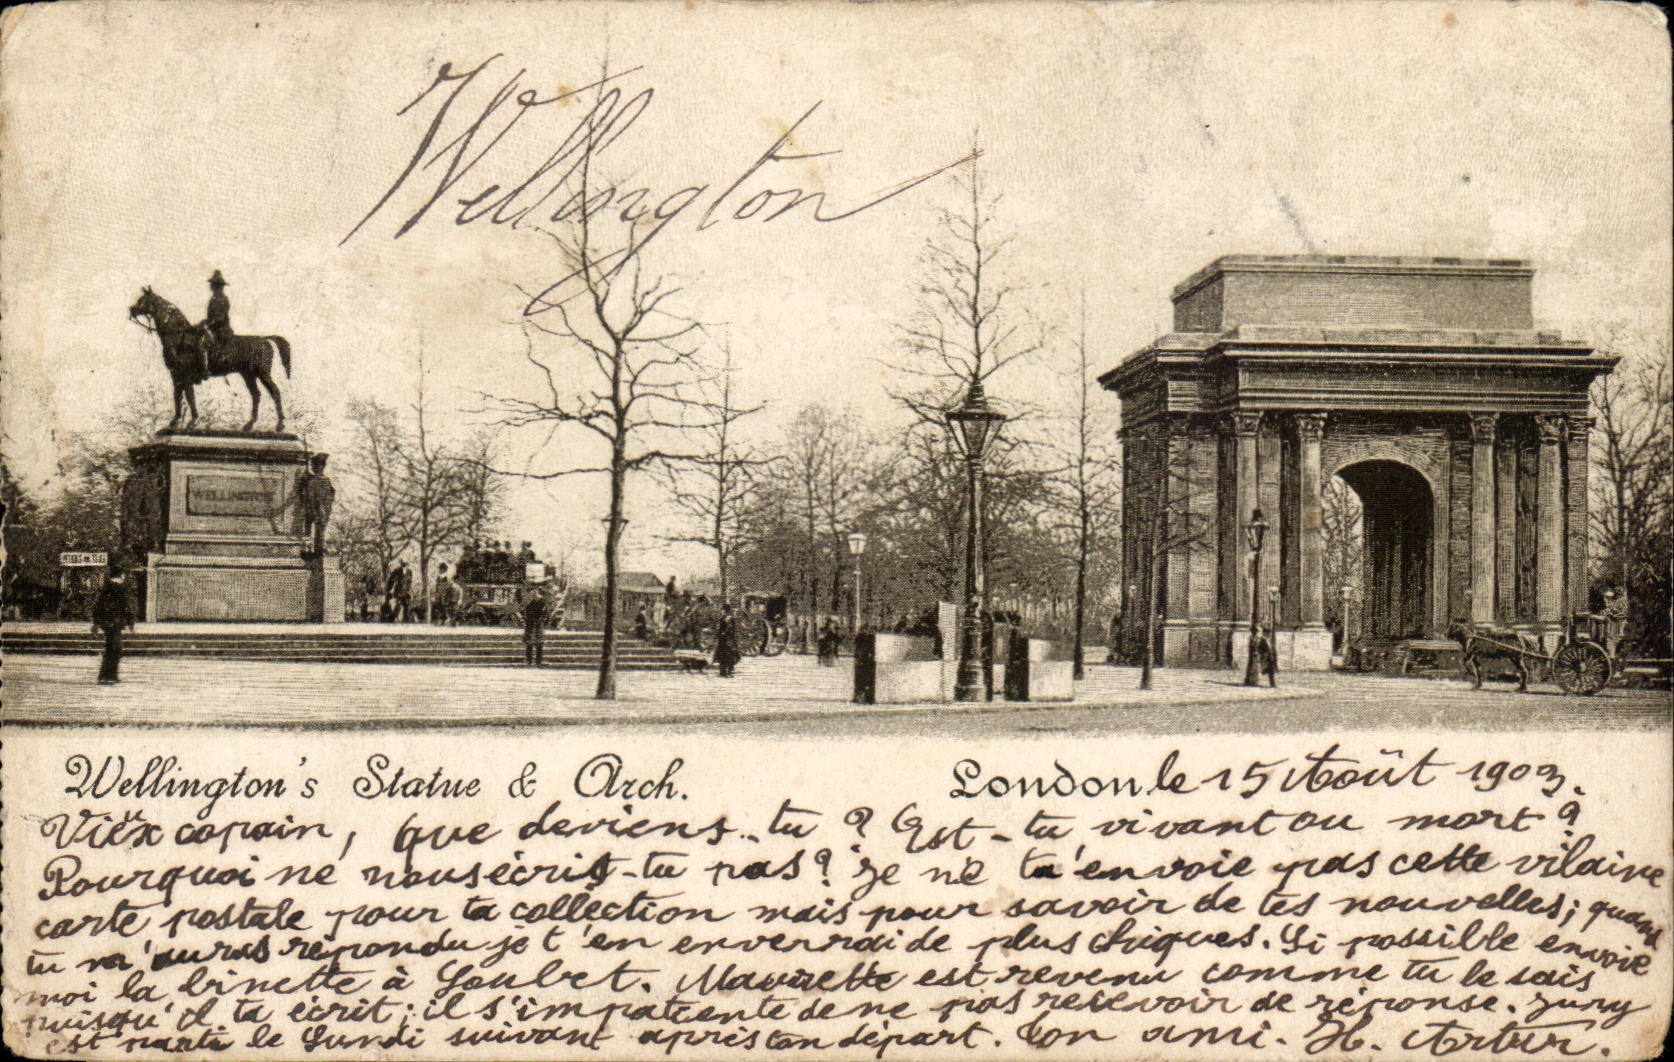 Wellington
WELLINGTON
Wellington's Statue & Arch.
London. le 15 Août 1903.
Viëx copain, que deviens-tu ? Est-tu vivant ou mort ?
Pourquoi ne nous écris-tu pas ? Je ne t'envoie pas cette vilaine
carte postale pour ta collection mais pour savoir de tes nouvelles; quand
tu m'auras répondu je t'en enverrai de plus chiques. Si possible envoie
moi la binette à Loubet. Maurette est revenu comme tu le sais
puisqu'il ta écrit; il s'impatiente de ne pas resevoir de réponse. Jury
est parti le Lundi suivant après ton départ. Ton ami. H. Artur.